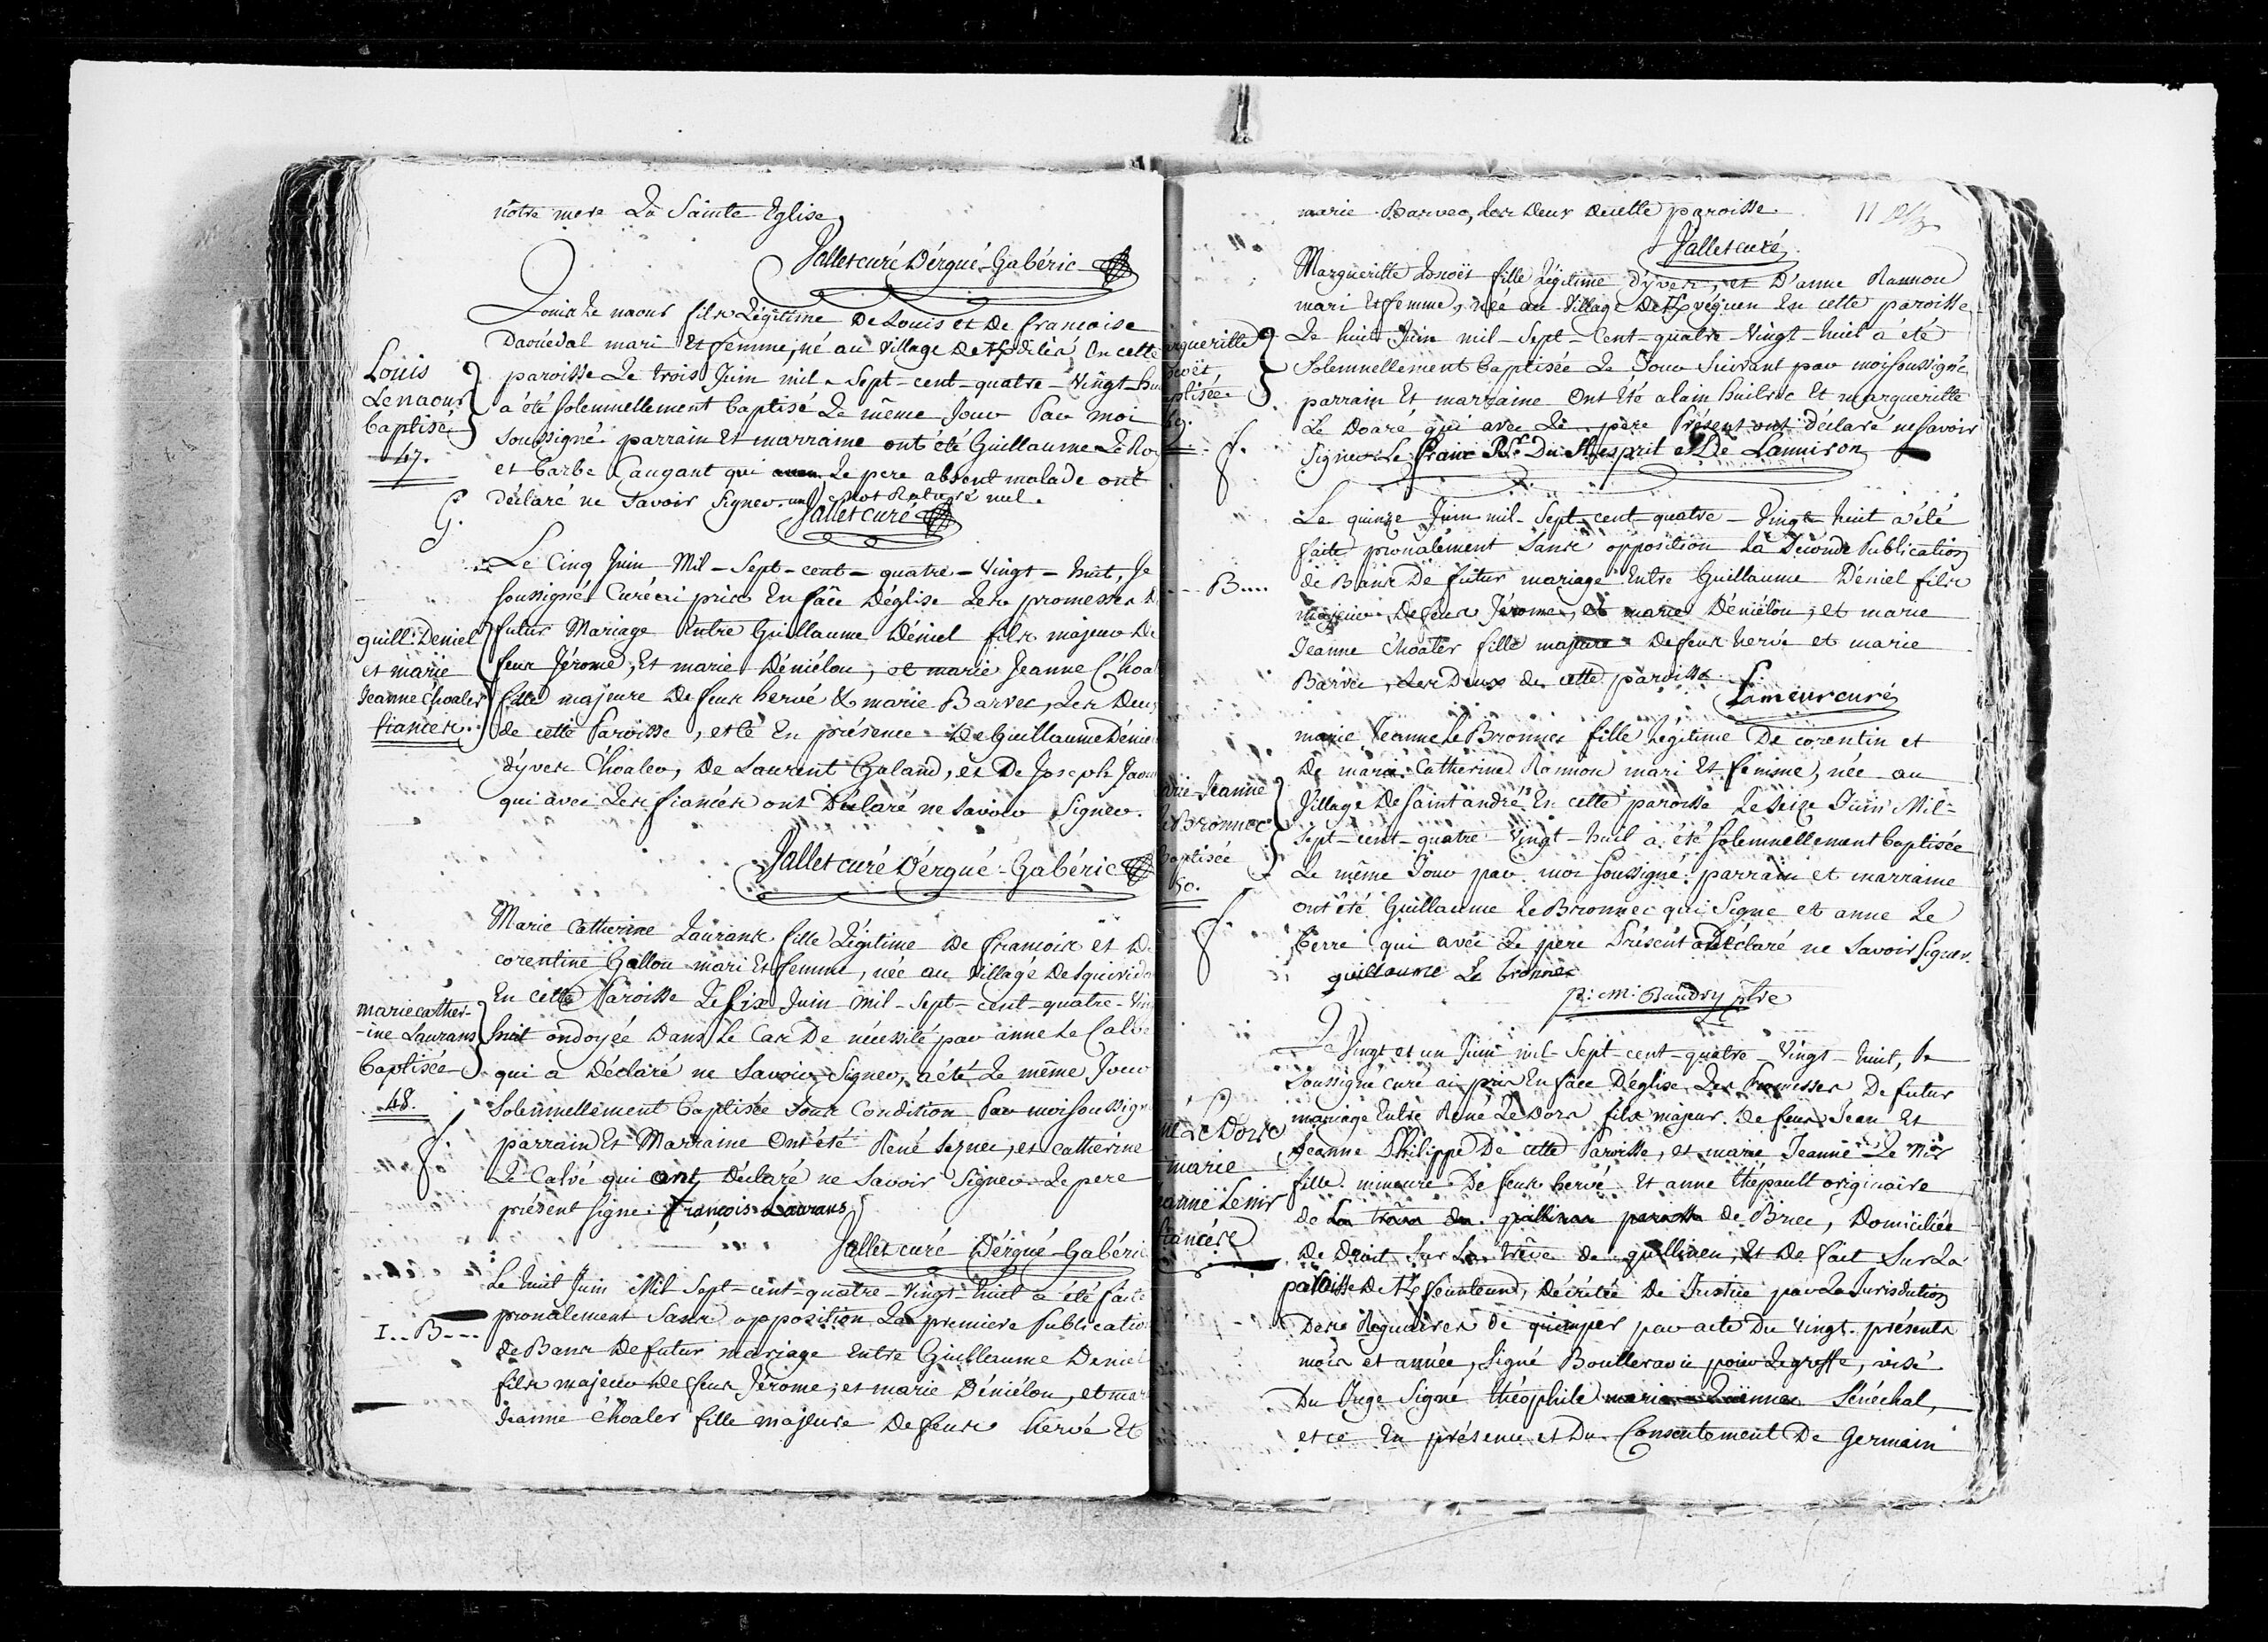 nôtre mere La Sainte Eglise,
Jallet curé D'érgué-Gabéric
Louis Le naour fils Légitime De Louis et De francoise
Daouedal mari Et femme, né au village De En cette
Louis
Le naour
baptisé
47.
G.
paroisse Le trois Juin mil-Sept-cent-quatre-Vingt-hu
a été solemnellement baptisé Le même Jour Par moi
soussigné. parrain Et marraine ont été Guillaume Le Ro
et barbe Caugant qui Le pere absent malade ont
déclaré ne savoir signer. un mot Raturé nul.
Jallet curé
Le Cinq Juin Mil-Sept-cent-quatre-Vingt-huit, Je
soussigné Curé ai pris En face D'église Les promesses D
guill: Deniel
et marie
Jeanne C'hoaler
fiancés.
futur Mariage Entre Guillaume Déniel fils majeur De
feus Jérome, Et marie Déniélou, et marie Jeanne C'hoal
fille majeure De feus hervé & marie Barvec, Les Deux
de cette Paroisse, et ce En présence De Guillaume Dénie
d'yves C'hoaler, De Laurent Galand, et De Joseph Jaou
qui avec Les fiancés ont Déclaré ne Savoir Signer.
Jallet curé D'érgué-Gabéric
Marie Catherine Laurans fille Légitime de francois et De
corentine Gallou mari Et femme, née au village
En cette Paroisse Le six Juin mil-Sept-cent-quatre-Ving
marie cather-
-ine Laurans
baptisée
48.
f.
huit ondoyée Dans Le Cas De nécessité par anne Le Calvé
qui a Déclaré ne Savoir Signer, a été Le même Jour
Solemnellement baptisée Sous Condition Par moi soussigné
parrain Et Marraine Ont été René et catherine
Le Calvé qui ont Déclaré ne Savoir Signer. Le pere
présent signe. francois Laurans
Jallet curé D'érgué-Gabéric
I..B---
Le huit Juin Mil Sept-cent-quatre-Vingt-huit a été faite
pronalement Sans opposition La premiere Publication
de Bans De futur mariage Entre Guillaume Deniel
fils majeur de feus Jérome, et marie Déniélou, et mar
Jeanne C'hoaler fille majeure De feus hervé Et
marie Barvec, Les Deux De cette paroisse.
11
Jallet curé
Margueritte fille Légitime d'yves, et D'anne Rannou
mari Et femme, née au village De En cette paroisse
argueritte
ptisée
f.
Le huit Juin mil-Sept-Cent-quatre-Vingt-huit a été
Solemnellement baptisée Le Jour Suivant par moi soussigné.
parrain Et marraine Ont Eté alain et margueritte
Le Doaré qui avec Le pere Présent ont déclaré ne savoir
signer. Le franc Du St esprit et De Lanniron
Le quinze Juin mil-Sept-cent-quatre-Vingt huit a été
faite pronalement Sans opposition La Seconde Publication
--- B....
de Bans De futur mariage Entre Guillaume Déniel fils
majeur De feus Jérome, et marie Déniélou, et marie
Jeanne C'hoaler fille majeure De feus hervé et marie
Barvec, Les Deux de cette paroisse.
Lameur curé
marie Jeanne Le Bronnec fille Légitime De corentin et
De marie Catherine Rannou mari Et femme, née au
rie-Jeanne
e Bronnec
baptisée
50.
f.
Village De saint andré En cette paroisse Le Seize Juin Mil-
Sept-cent-quatre-Vingt-huit a été solemnellement baptisée
Le même Jour par moi soussigné. parrain et marraine
ont été Guillaume Le Bronnec qui Signe et anne Le
berre qui avec Le pere Présent a Déclaré ne Savoir signer.
guillaume Le bronnec
p: m: Baudry ptre
Le Vingt et un Juin mil-Sept-cent-quatre-Vingt-huit, Je
soussigné curé ai pris En face D'église Les Promesses De futur
né Le Dors
marie
anne Le nir
fiancés
mariage Entre René Le Dors fils majeur De feus Jean Et
Jeanne Philippe De cette Paroisse, et marie Jeanne Le Nir
fille mineure De feus hervé Et anne thépault originaire
de de Briec, Domiciliée
De Droit Sur La trêve de quillinen, Et De fait Sur La
paroisse De Kfeunteun, Décrétée De Justice par La Jurisdiction
Des Reguaires de quimper par acte Du Vingt présents
mois et année, Signé pour Le greffe, visé
Du Juge Signé théophile Sénéchal,
et ce En présence et Du Consentement De Germain